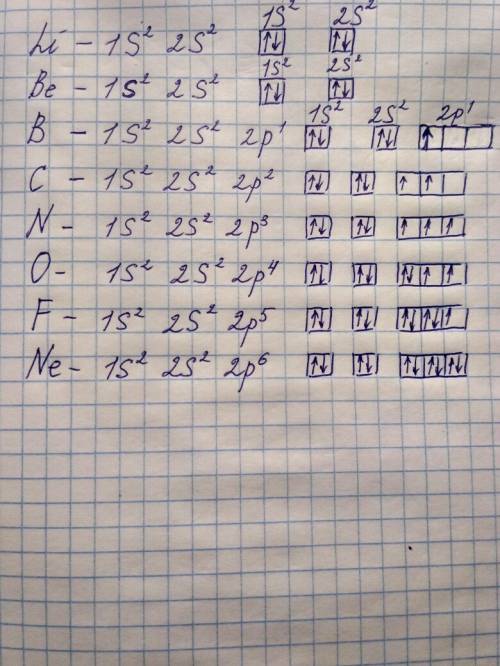 1S² 2S²
Li – 1S² 2S² ↑↓ ↑↓
1S² 2S²
Be – 1S² 2S² ↑↓ ↑↓
1S² 2S² 2p¹
B – 1S² 2S² 2p¹ ↑↓ ↑↓ ↑
C – 1S² 2S² 2p² ↑↓ ↑↓ ↑ ↑
N – 1S² 2S² 2p³ ↑↓ ↑↓ ↑ ↑ ↑
O – 1S² 2S² 2p⁴ ↑↓ ↑↓ ↑↓ ↑ ↑
F – 1S² 2S² 2p⁵ ↑↓ ↑↓ ↑↓ ↑↓ ↑
Ne – 1S² 2S² 2p⁶ ↑↓ ↑↓ ↑↓ ↑↓ ↑↓